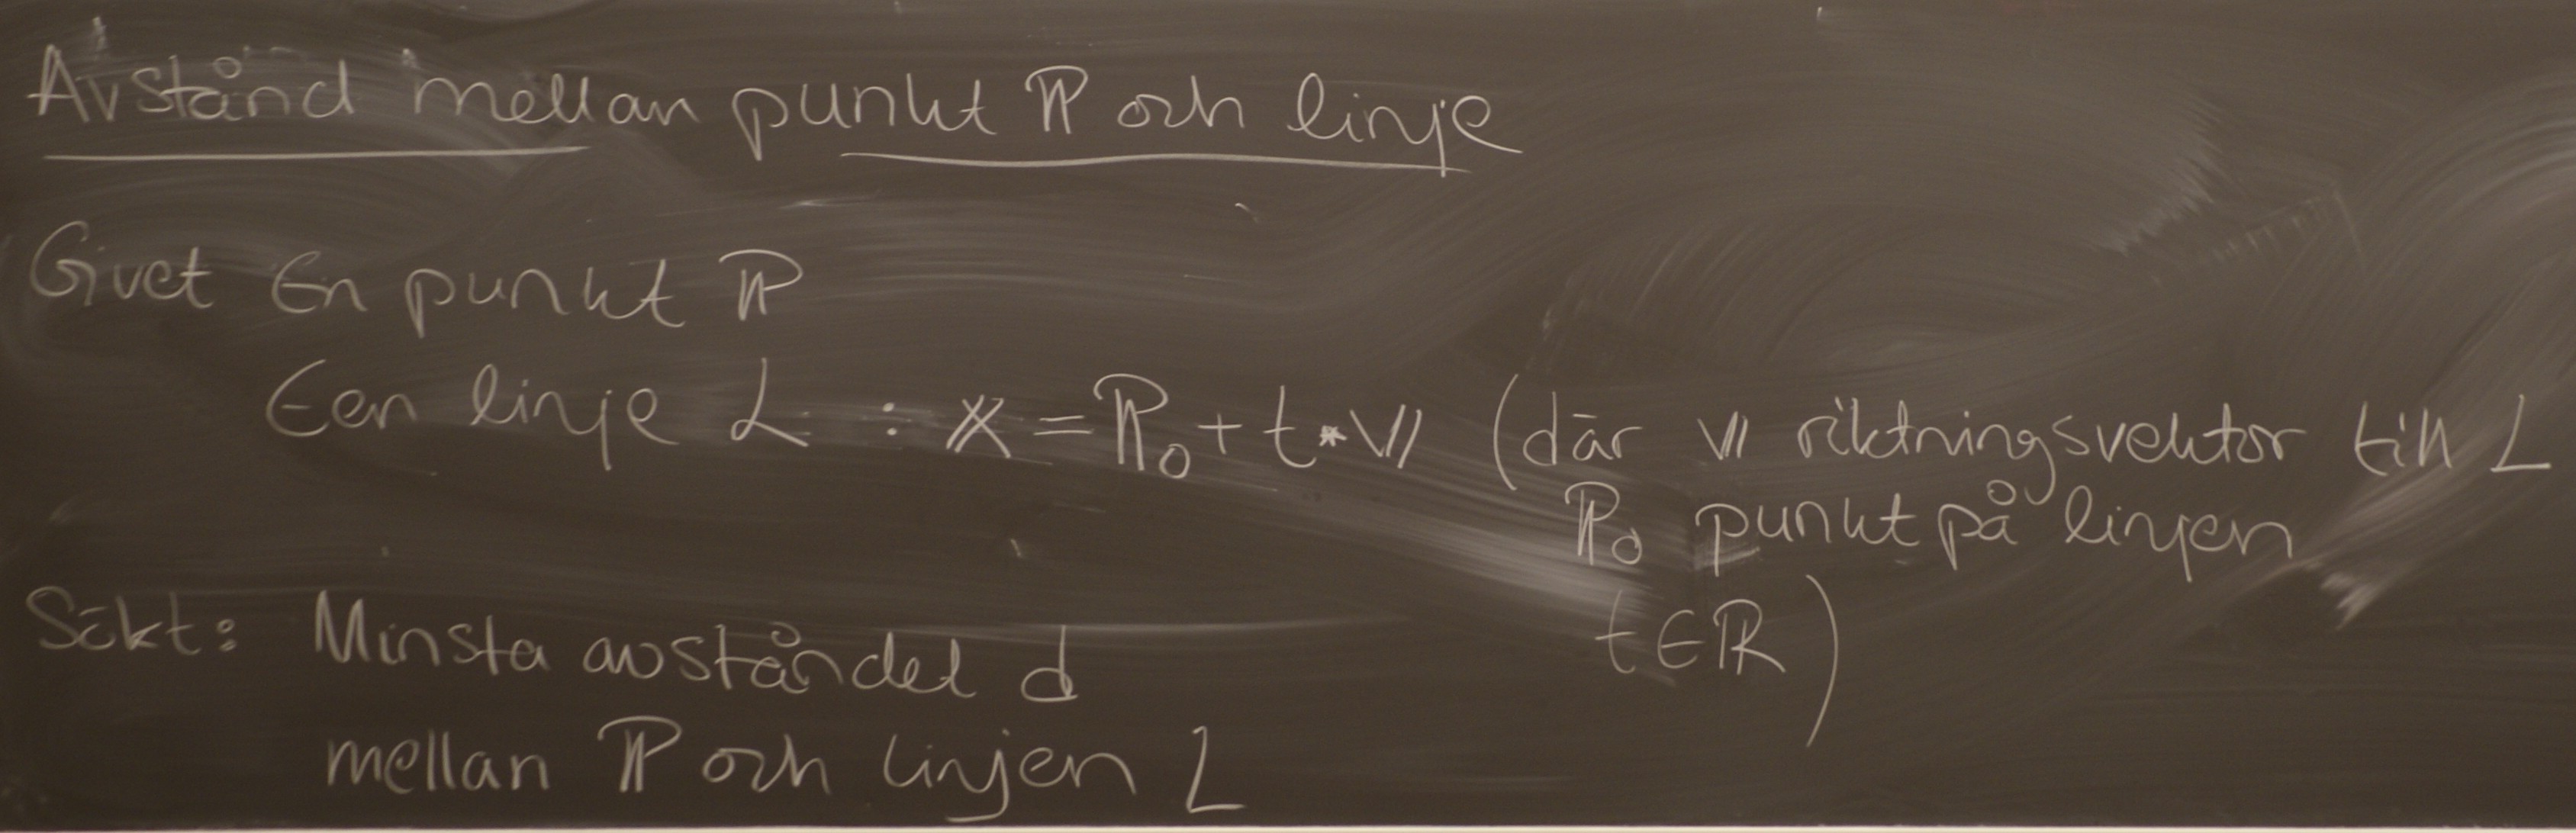 Avstånd mellan punkt ℙ och linje
Givet En punkt ℙ
Een linje L : 𝕏 = ℙ₀ + t * 𝕍 (där 𝕍 riktningsvektor till L
ℙ₀ punkt på linjen
t ∈ ℝ)
Sökt: Minsta avståndet d
mellan ℙ och linjen L